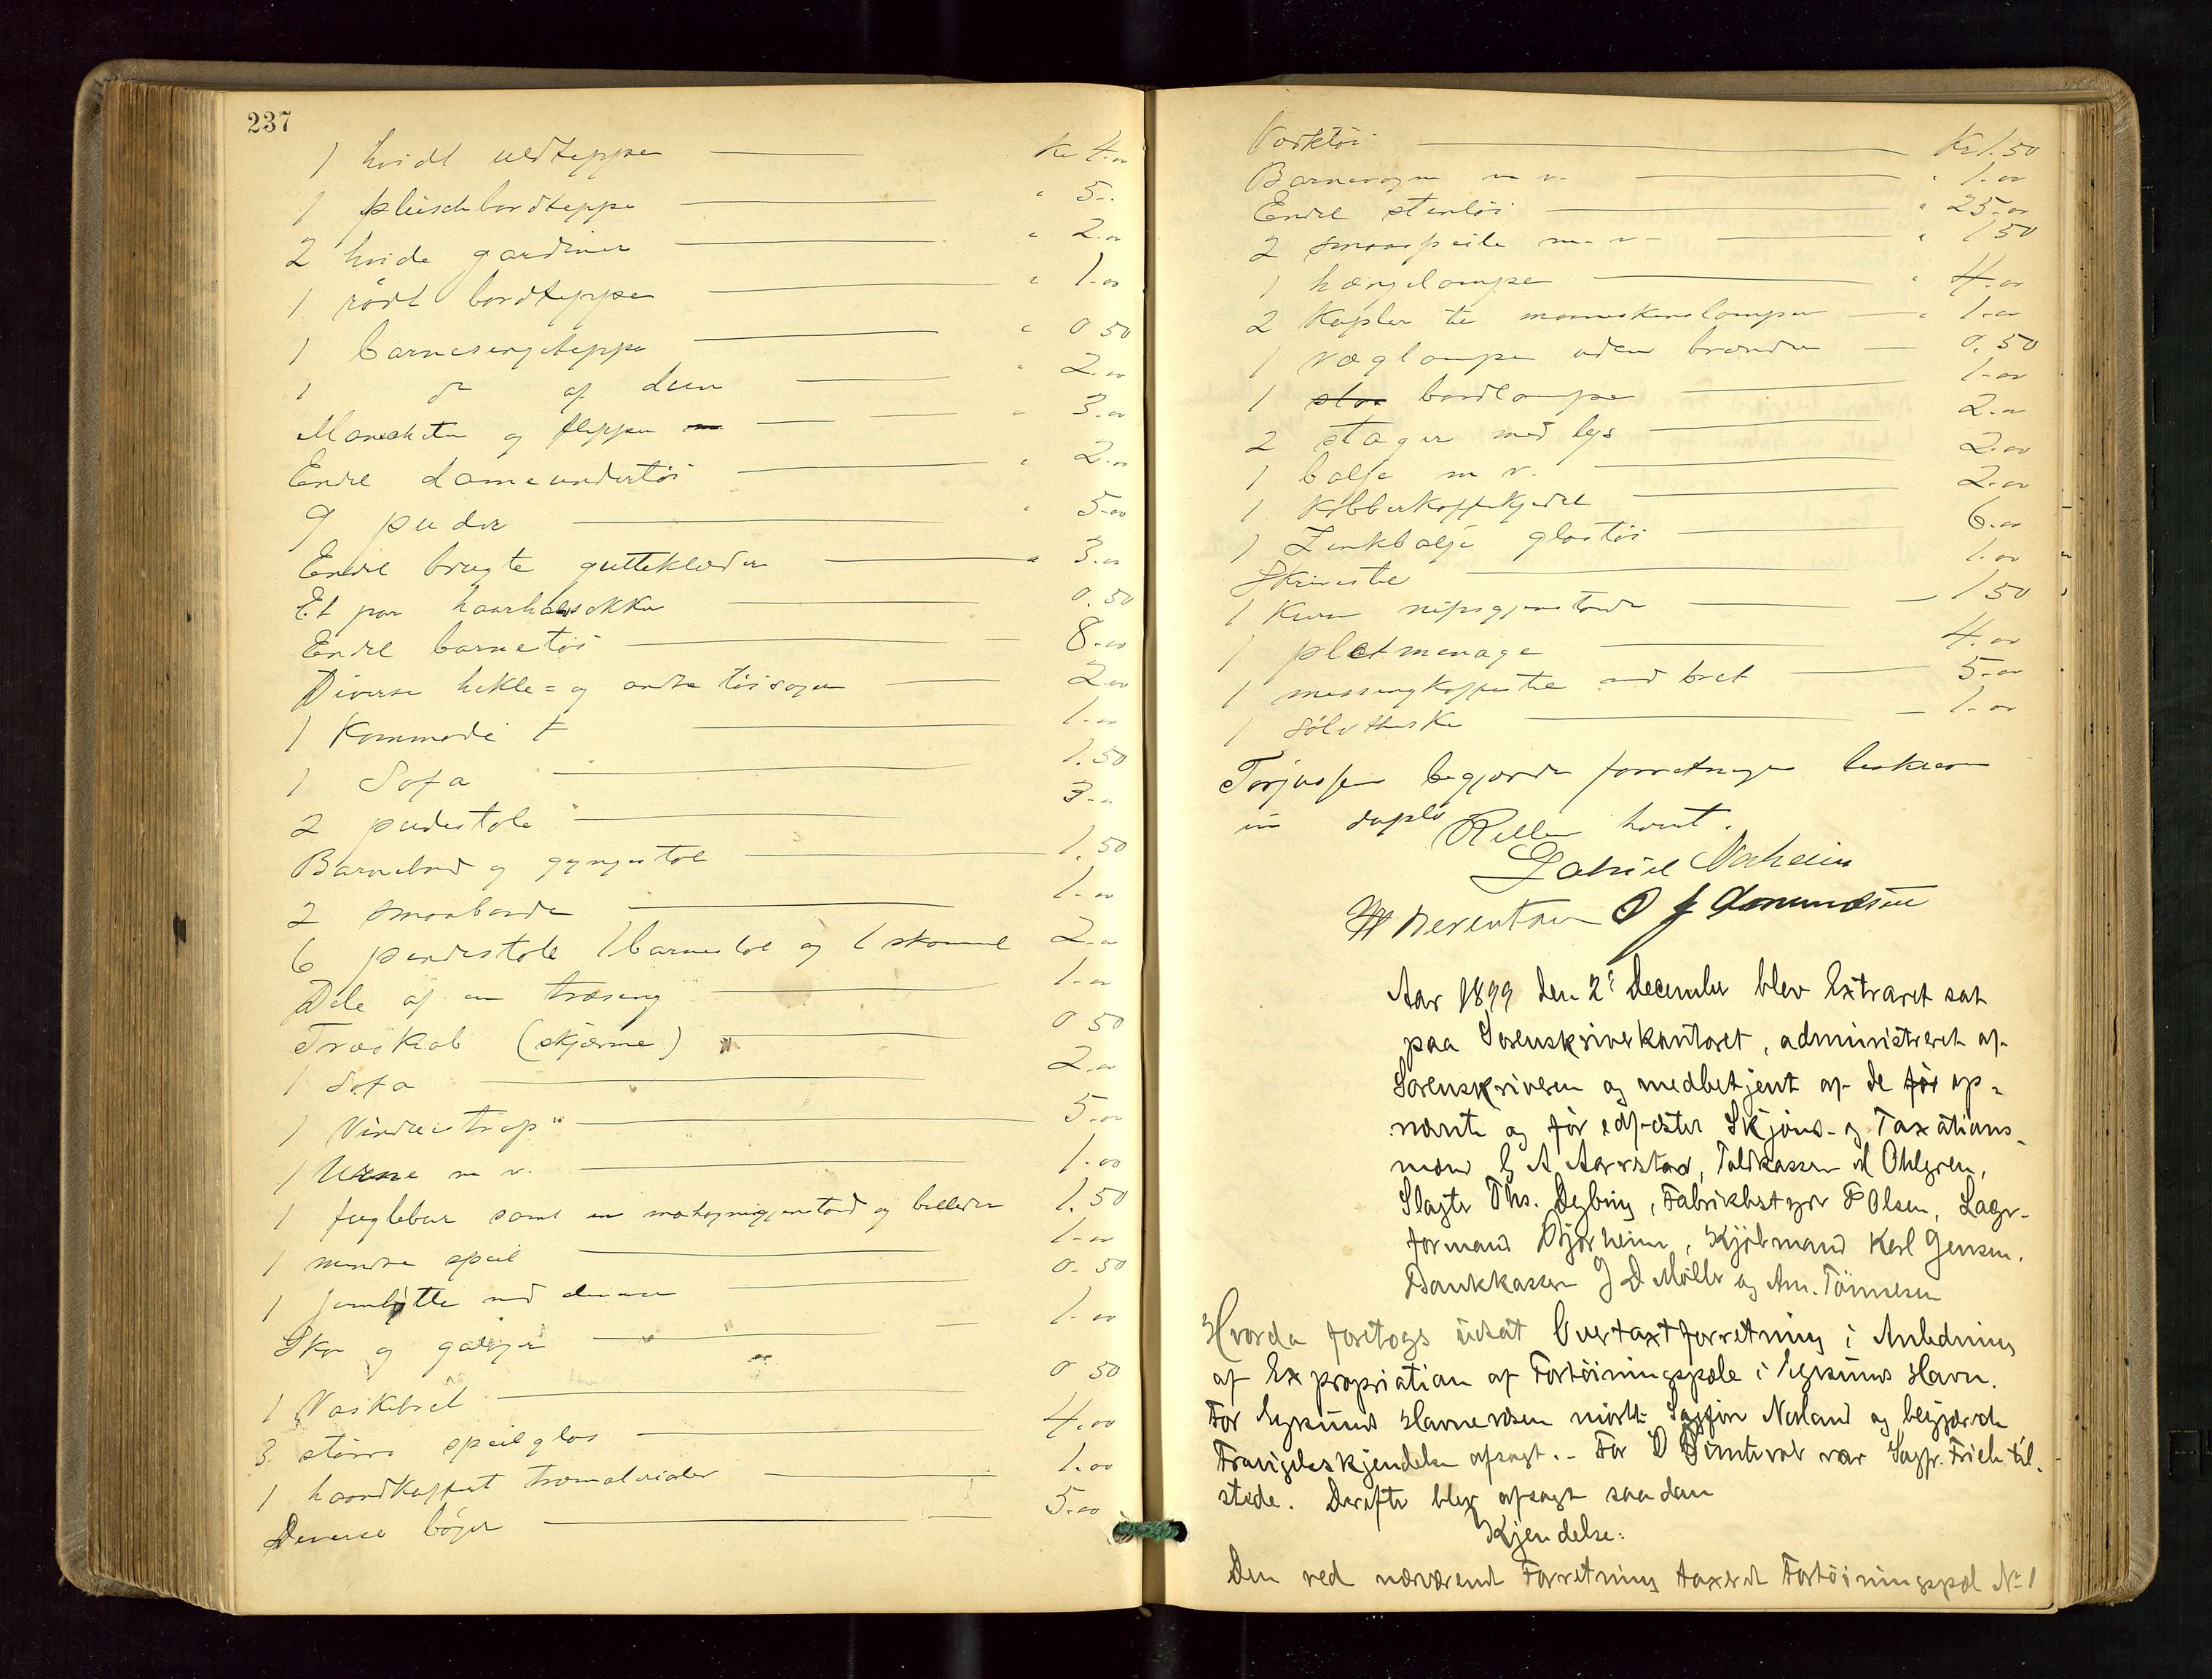 237
1 hvidt uldteppe Kr 4.00
1 plüschbordteppe " 5.-
2 hvide gardiner " 2.00
1 rødt bordteppe " 1.00
1 barnesengteppe " 0 50
1 do af dun " 2.00
Manschetter og flipper " 3.00
Endel dameundertøi " 2.00
9 puder " 5.00
Endel brugte gutteklæder " 3.00
Et par haarhalsokker 0.50
Endel barnetøi 8.00
Diverse hekle= og andre tøisager 2.00
1 Kommode 1.00
1 Sofa 1.50
2 pudestole 3.00
Barnebord og gyngestol 1.50
2 smaaborde 1.00
6 pindestole 1 barnestol og 1 skammel 2.00
Dele af en træseng 1.00
Træskab (skjærme) 0 50
1 Sofa 2.00
1 Vindustrap 5.00
1 Urne m v. 1.00
1 fuglebur samt en mahognigjenstand og billeder 1.50
1 mindre speil 1.00
1 jernbøtte med 0.50
Sko og galoger 1.00
1 Vaskebret 0 50
3 større speilglas 4.00
1 haandkuffert træmaterialer 1.00
Diverse bøger 5.00
Verktøi Kr 1.50
Barnevogn m v. " 1.00
Endel stentøi " 25.00
2 smaaspeile m. v " 1 50
1 hængelampe " 4.00
2 Kupler til lamper " 1.00
1 væglampe uden brænder 0.50
1 bordlampe 1.00
2 stager med lys 2.00
1 balje m v. 2.00
1 Kobberkaffekjedel 2.00
1 Zinkbalje glastøi 6.00
Skrivestel 1.00
1 Kurv nipsgjenstande 1 50
1 pletmenage 4.00
1 messingkaffestel med bret 5.00
1 sølvtheske 1.00
Torjussen begjærede forretningen beskreven
in duplo
Retten hævet.
Gabriel Norheim
W Berentsen O J Aamundsen
Aar 1899 den 2' December blev Extraret sat
paa Sorenskriverkontoret, administreret af
Sorenskriveren og medbetjent af de før op=
nævnte og før edfæster Skjøns- og Taxations-
mænd G A Aarrstad, Toldkasser M Ohlgren,
Slagter Ths. Dybing, Fabrikbestyr F Olsen, Lagr-
formand Bjørheim, Kjøbmand Karl Jensen,
Bankkasser J D Møller og Am. Tønnesen
Hvorda foretogs udsat Overtaxtforretning i Anledning
af Expropriation af Fortøiningspæle i Egersunds Havn.
For Egersunds Havnevæsen mødte Sagfør Norland og begjærede
Fravigelseskjendelse afsagt.- For var Sagfr. Friele til-
stede. Derefter blev afsagt saadan
Kjendelse:
Den ved nærværende Forretning taxerede Fortøiningspæl No 1